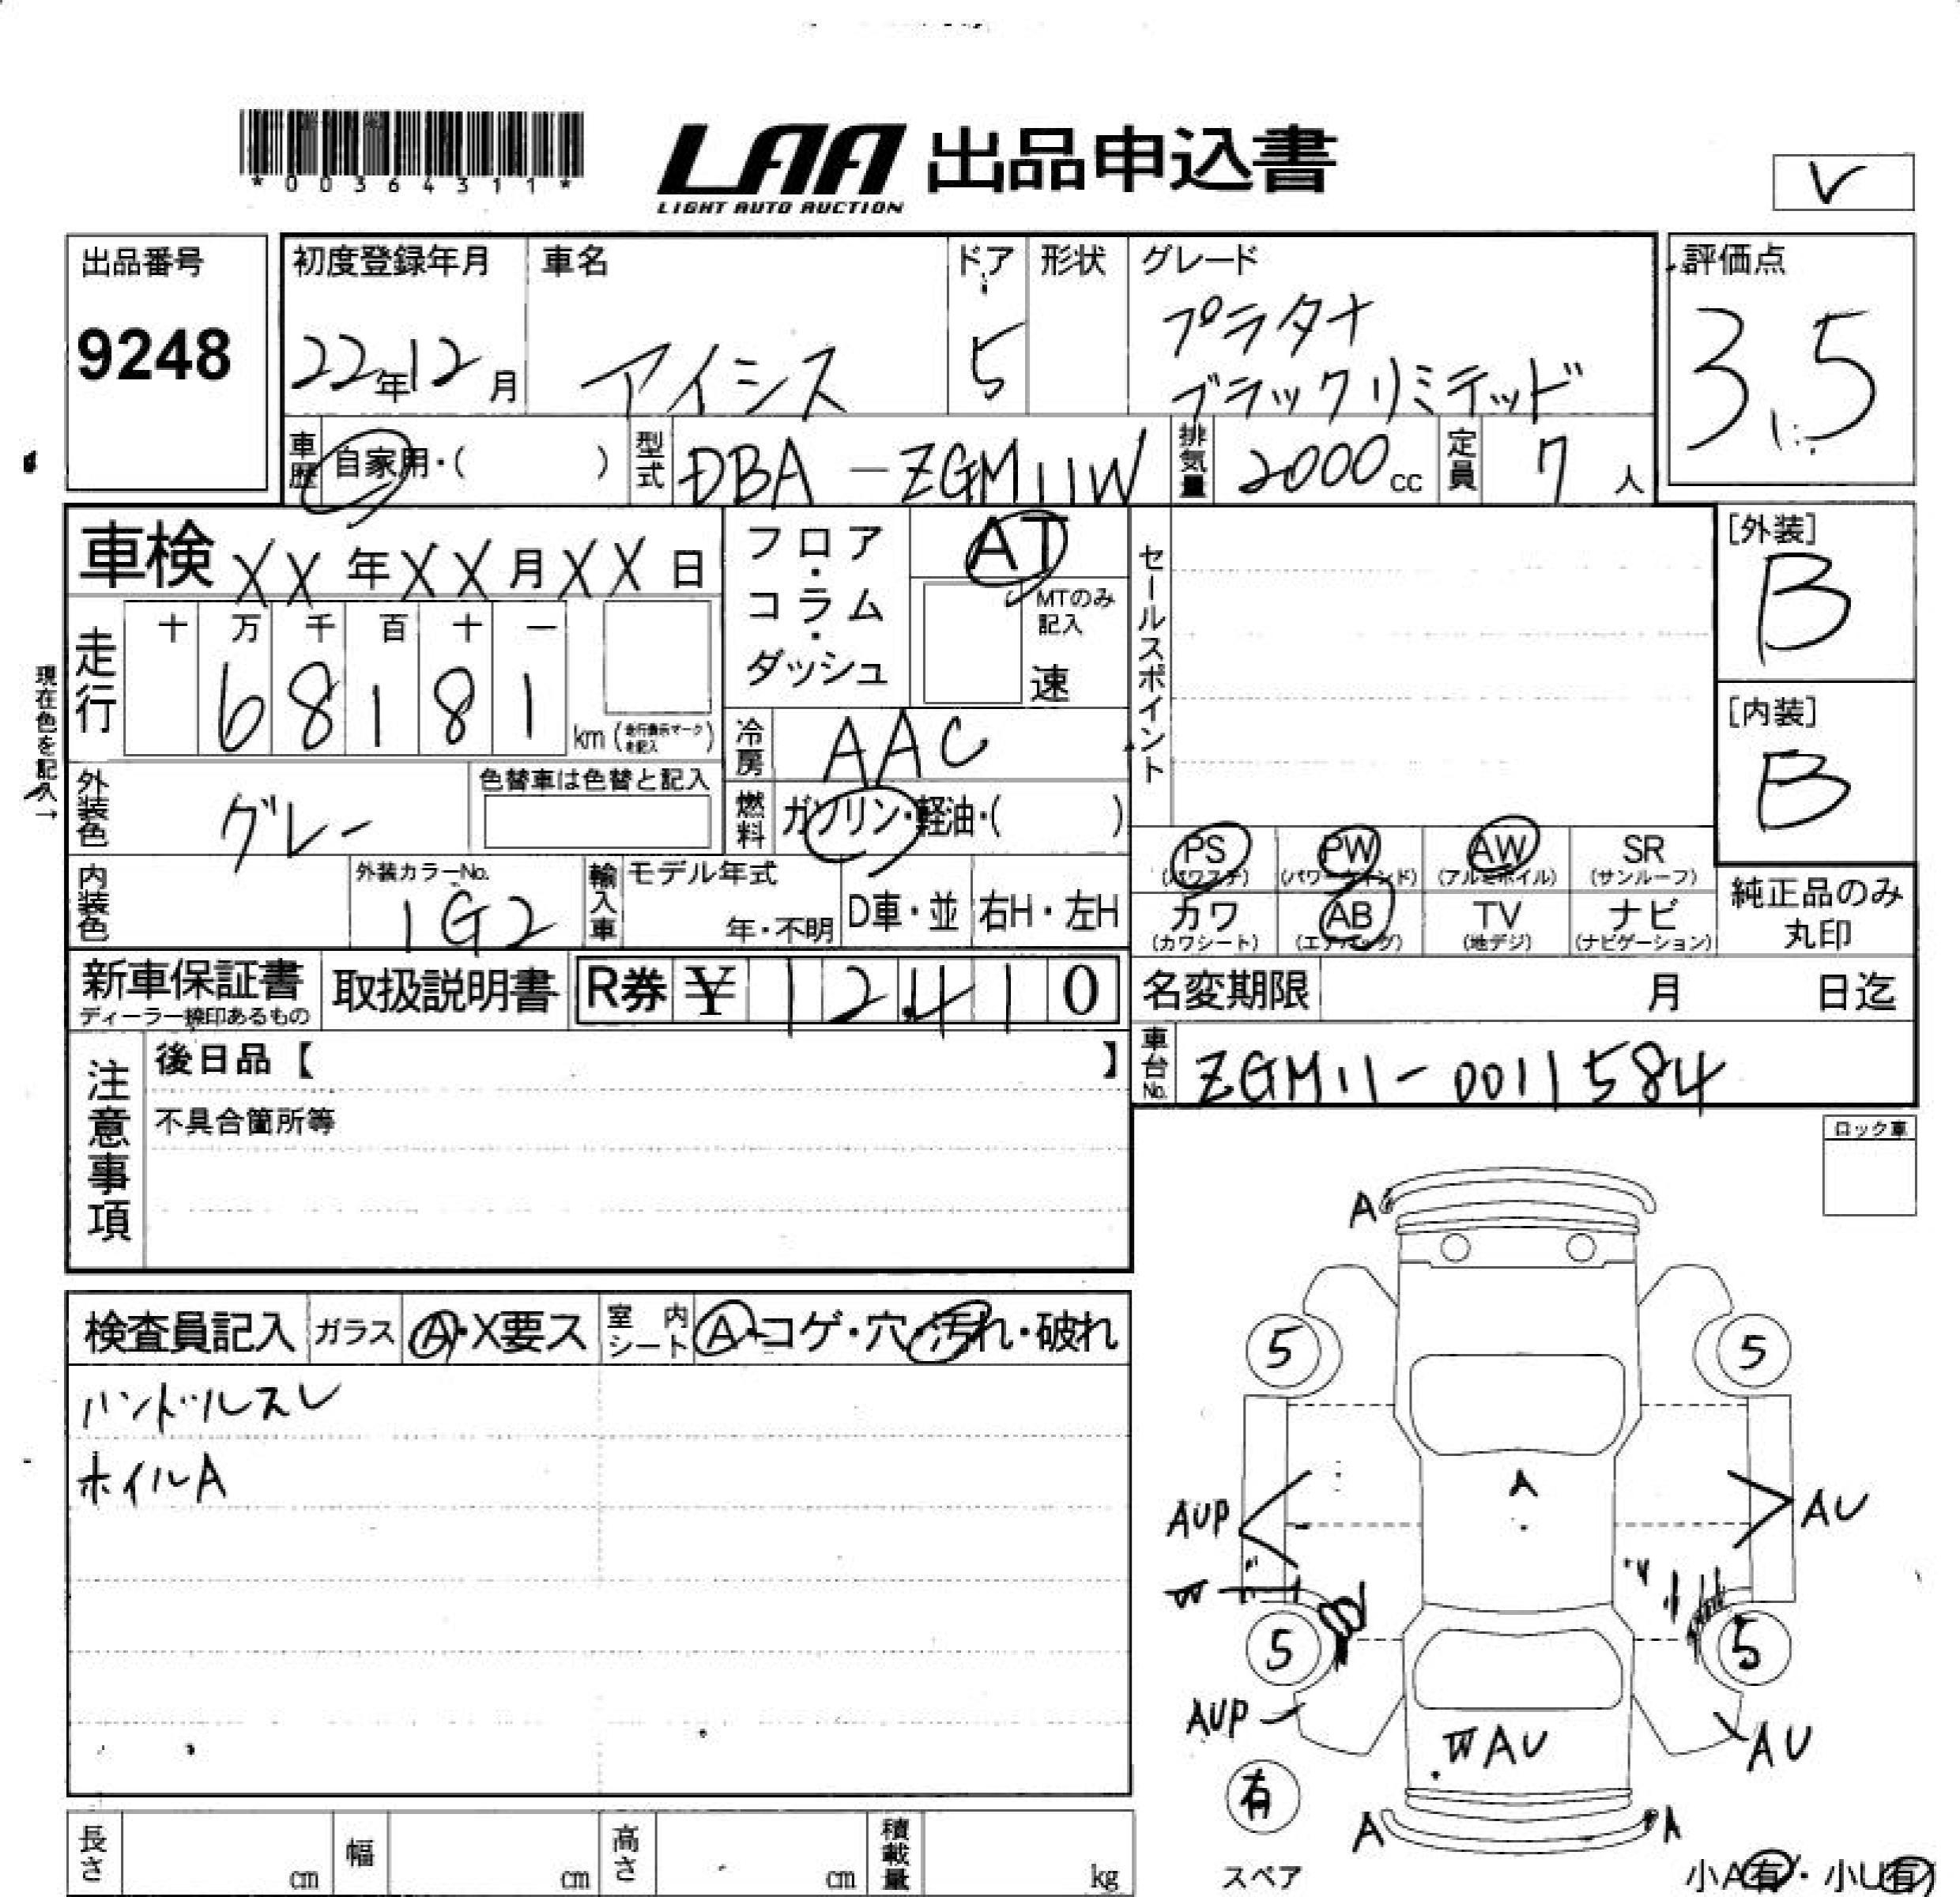 *00364311*
LAA 出品申込書
LIGHT AUTO AUCTION
V
出品番号
9248
初度登録年月
22年12月
車名
アイシス
ドア
5
形状
グレード
プラタナ
ブラックリミテッド
評価点
3.5
車歴
自家用・( )
型式
DBA-ZGM11W
排気量
2000cc
定員
7人
車検 XX年XX月XX日
フロア・コラム・ダッシュ
AT
MTのみ記入
速
セールスポイント
[外装]
B
現在色を記入→
走行
十 万 千 百 十 一
68181
km (走行表示マークを記入)
冷房
AAC
[内装]
B
外装色
グレー
色替車は色替と記入
燃料
ガソリン・軽油・( )
PS (パワステ)
PW (パワーウインド)
AW (アルミホイル)
SR (サンルーフ)
内装色
外装カラーNo.
1G2
輸入車
モデル年式
年・不明
D車・並
右H・左H
カワ (カワシート)
AB (エアバッグ)
TV (地デジ)
ナビ (ナビゲーション)
純正品のみ
丸印
新車保証書
ディーラー捺印あるもの
取扱説明書
R券 ¥12,410
名変期限 月 日迄
注意事項
後日品【 】
不具合箇所等
車台No.
ZGM11-0011584
ロック車
検査員記入
ガラス
A・X要ス
室内シート
A・コゲ・穴・汚れ・破れ
ハンドルスレ
ホイルA
A
5 5
A
AUP AU
W
5 5
AUP AU
W AU
有
A A
スペア
小A有・小U有
長さ cm
幅 cm
高さ cm
積載量 kg